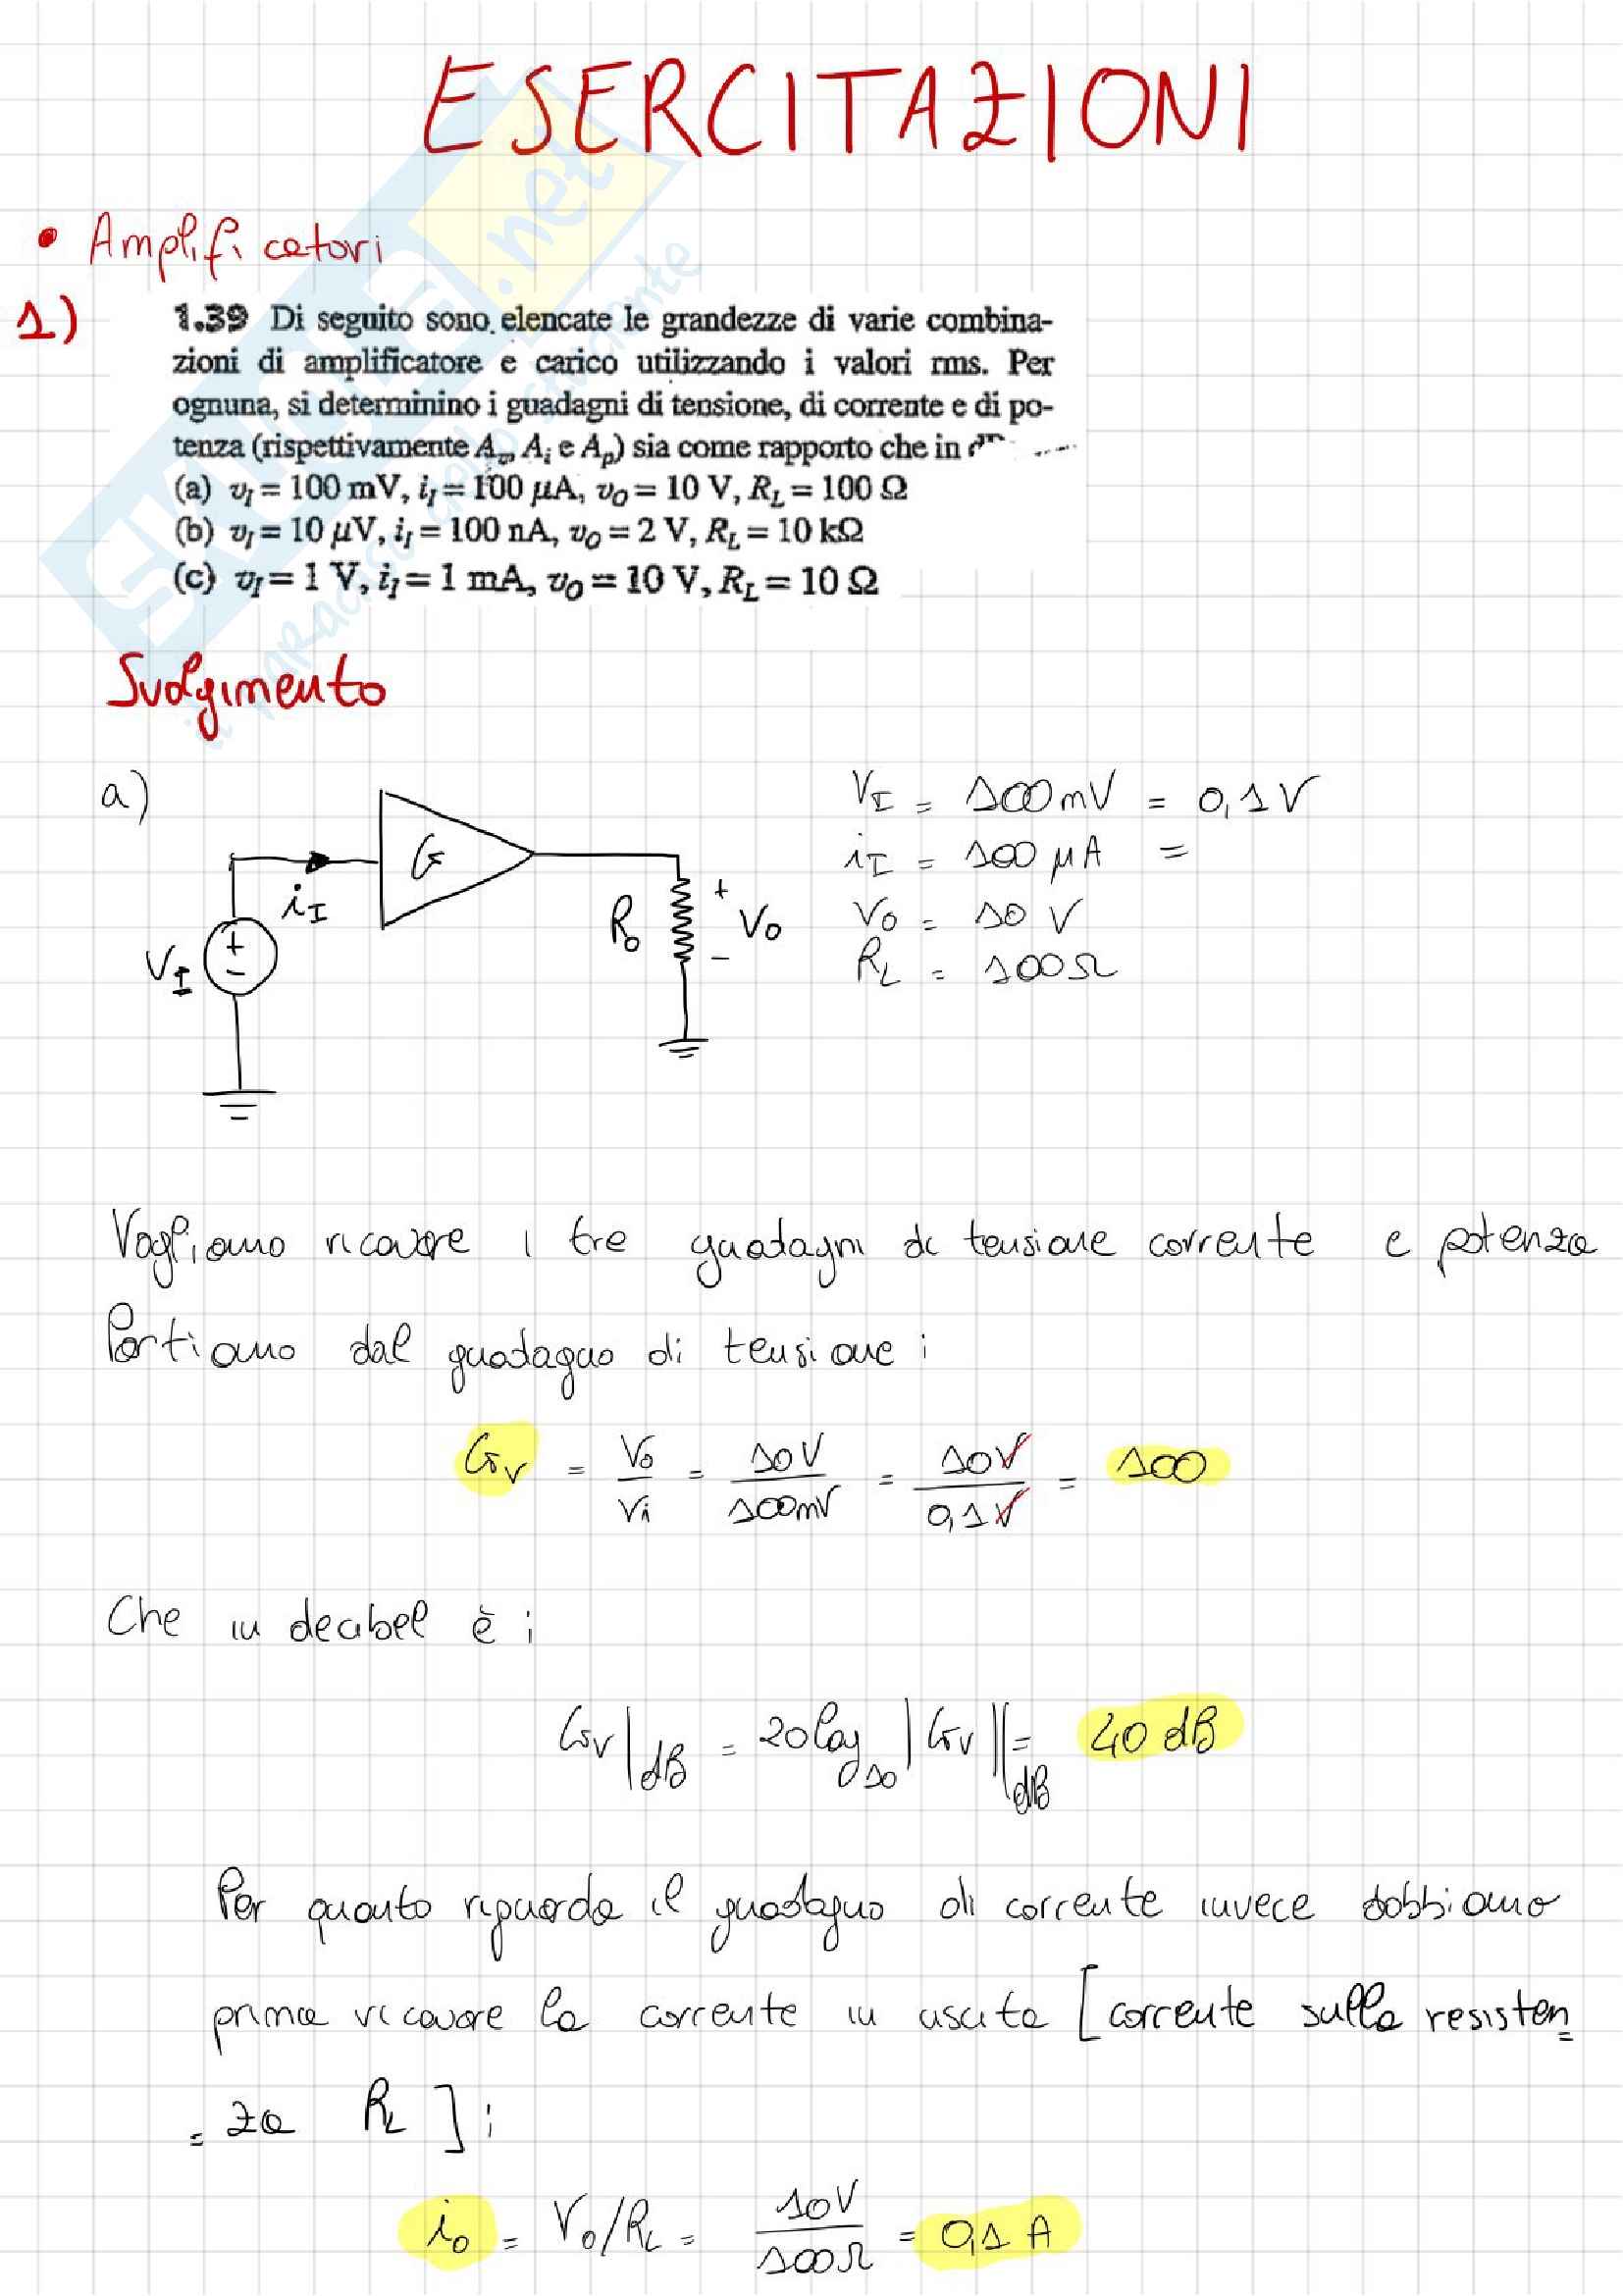 ESERCITAZIONI
• Amplificatori
1)
1.39 Di seguito sono elencate le grandezze di varie combina-
zioni di amplificatore e carico utilizzando i valori rms. Per
ognuna, si determinino i guadagni di tensione, di corrente e di po-
tenza (rispettivamente Aᵥ, Aᵢ e Aₚ) sia come rapporto che in
(a) v_I = 100 mV, i_I = 100 μA, v_O = 10 V, R_L = 100 Ω
(b) v_I = 10 μV, i_I = 100 nA, v_O = 2 V, R_L = 10 kΩ
(c) v_I = 1 V, i_I = 1 mA, v_O = 10 V, R_L = 10 Ω
SKUOLA.net
il paradiso dello studente
Svolgimento
a)
V_I = 100mV = 0,1V
i_I = 100 μA =
V_o = 10 V
R_L = 100Ω
G
i_I
V_I
+
-
R_o
+
V_o
-
Vogliamo ricavare i tre guadagni di tensione corrente e potenza
Partiamo dal guadagno di tensione :
G_V = V_o / V_i = 10V / 100mV = 10V / 0,1V = 100
Che in decibel è :
G_V |dB = 20 log₁₀ |G_V| |dB = 40 dB
Per quanto riguarda il guadagno di corrente invece dobbiamo
prima ricavare la corrente in uscita [corrente sulla resisten=
=za R_L ] :
i_o = V_o/R_L = 10V / 100Ω = 0,1 A